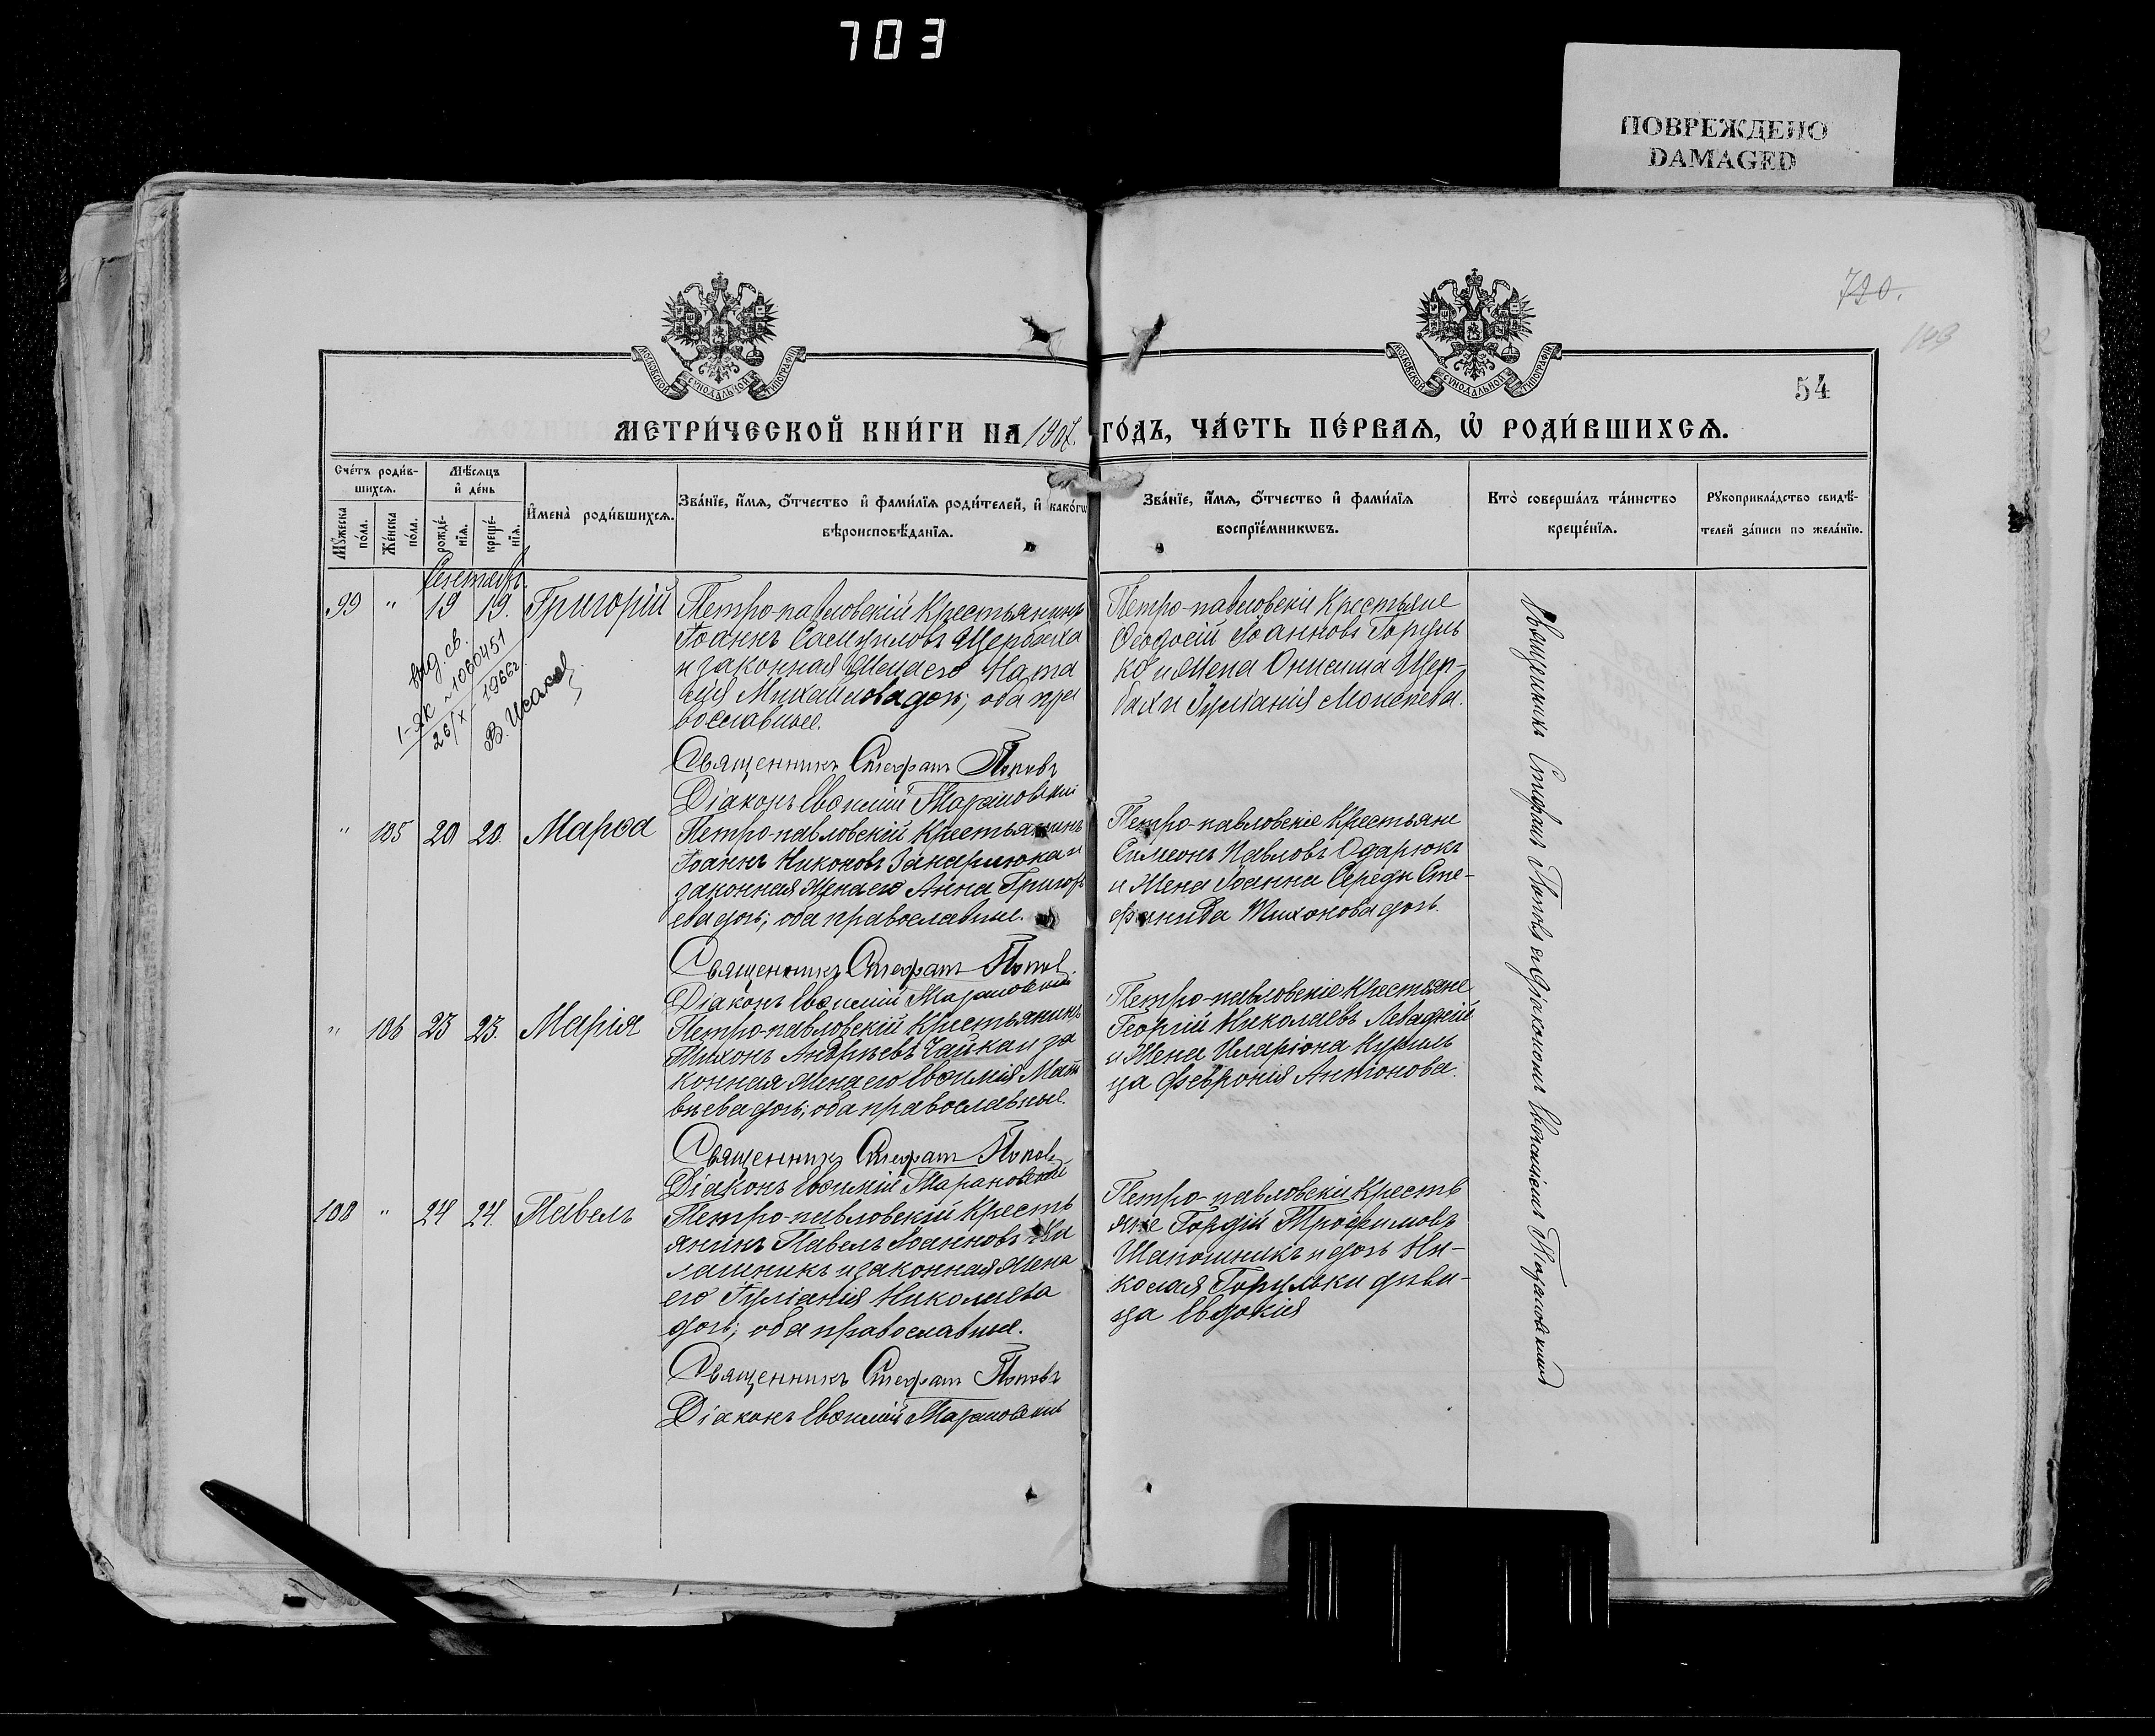 703
ПОВРЕЖДЕНО
DAMAGED
720.
103
54
МОСКОВСКОЙ СУНОДАЛЬНОЙ ТИПОГРАФІИ
МОСКОВСКОЙ СУНОДАЛЬНОЙ ТИПОГРАФІИ
МЕТРИ́ЧЕСКОЙ КНИ́ГИ НА 1907 ГО́ДЪ, ЧА́СТЬ ПЕ́РВАѦ, Ѡ҆ РОДИ́ВШИХСѦ.
Сче́тъ роди́в-
шихсѧ.
Мꙋ́жеска по́ла.
Же́нска по́ла.
Мѣ́сѧцъ
и҆ де́нь
рожде́-
нїѧ.
креще́-
нїѧ.
И҆мена̀ роди́вшихсѧ.
Зва́нїе, и҆́мѧ, ѻ҆́тчество и҆ фами́лїѧ роди́телей, и҆ како́гѡ
вѣроисповѣ́данїѧ.
Зва́нїе, и҆́мѧ, ѻ҆́тчество и҆ фами́лїѧ
воспрїе́мникѡвъ.
Кто̀ соверша́лъ та́инство
креще́нїѧ.
Рꙋкоприкла́дство свидѣ́-
телей за́писи по жела́нїю.
Сентябрь
99 " 19 19. Григорій
Петро-павловскій Крестьянинъ
Іоаннъ Самуиловъ Щербаха
и законная Жена его Ната
лія Михаиловадоч; оба пра
вославные.
Священникъ Стефанъ Поповъ
Діаконъ Евѳимій Тарановскій
Петро-павловскіе Крестьяне
Ѳеодосій Іоанновъ Горуль
ко и Жена Онисима Щер-
бахи Іуліанія Моисеева.
выд. св.
1-ЯК ~ 1060451
26/X - 1966г.
В. Исаков
" 105 20 20. Марѳа
Петро-павловскій Крестьянинъ
Іоаннъ Никоновъ Захарлюка и
законная Жена его Анна Григорь
ева доч; оба православные.
Священникъ Стефанъ Поповъ
Діаконъ Евѳимій Тарановскій
Петро-павловскіе Крестьяне
Симеонъ Павловъ Одарюкъ
и Жена Іоанна Середы Сте-
фанида Тихонова дочь.
" 106 23 23. Марія
Петро-павловскій Крестьянинъ
Тихонъ Андреевъ Чайка и за
конная Жена его Евѳимія Мат
вѣева доч; оба православные.
Священникъ Стефанъ Поповъ
Діаконъ Евѳимій Тарановскій
Петро-павловскіе Крестьяне
Георгій Николаевъ Левадній
и Жена Иларіона Куриль
ца Февронія Антонова.
100 " 24 24. Павелъ
Петро-павловскій Кресть
янинъ Павелъ Іоанновъ Ка
лашникъ и законная Жена
его Іуліанія Николаева
доч; оба православные.
Священникъ Стефанъ Поповъ
Діаконъ Евѳимій Тарановскій
Петро-павловскіе Кресть
яне Гордій Трофимовъ
Шапошникъ и дочь Ни-
колая Горульки дѣви-
ца Евдокія
Священникъ Стефанъ Поповъ съ Діакономъ Евѳиміемъ Тарановскимъ